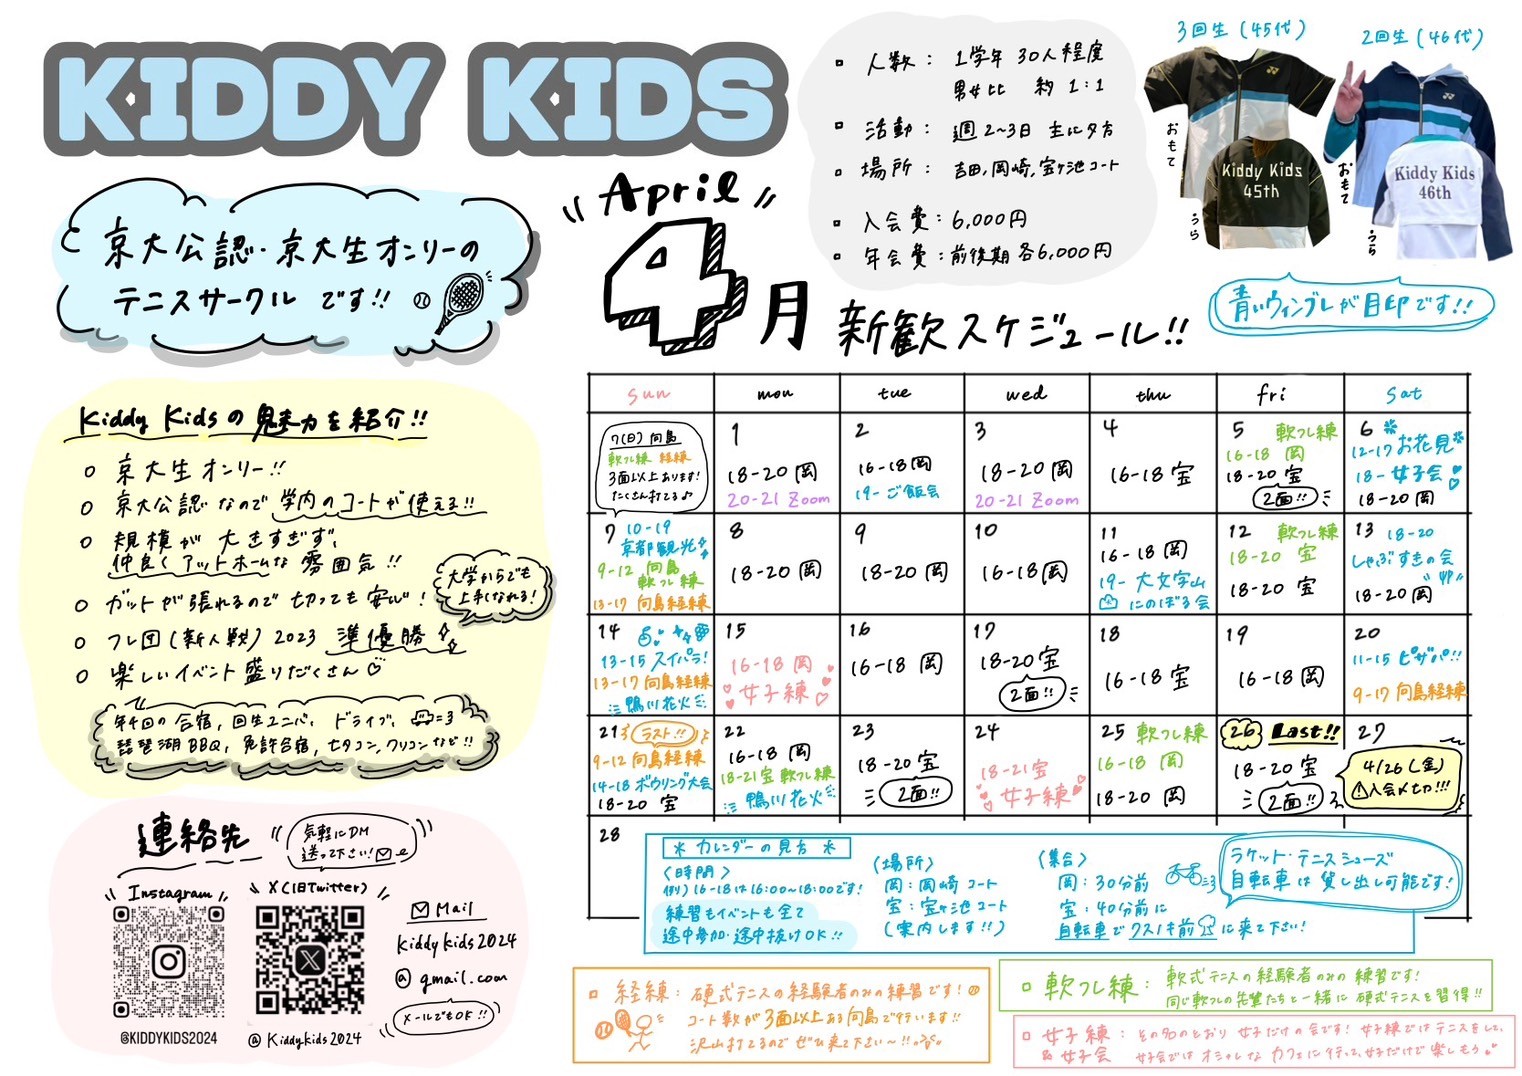 KIDDY KIDS
京大公認・京大生オンリーの
テニスサークル です!!
人数： 1学年 30人程度
男女比 約 1:1
活動： 週2~3日 主に夕方
場所： 吉田, 岡崎, 宝ヶ池コート
入会費：6,000円
年会費：前後期 各6,000円
3回生 (45代)
おもて
Kiddy Kids
45th
うら
2回生 (46代)
おもて
Kiddy Kids
46th
うら
青いウィンブレが目印です!!
April
4月 新歓スケジュール!!
Kiddy Kidsの魅力を紹介!!
京大生オンリー!!
京大公認なので学内のコートが使える!!
規模が大きすぎず、
仲良くアットホームな雰囲気!!
ガットが張れるので切っても安心!
大学からでも
上手くなれる!
フレ団(新人戦) 2023 準優勝
楽しいイベント盛りだくさん♡
年4回の合宿, 回生ユニバ, ドライブ,
琵琶湖BBQ, 免許合宿, 七夕コン, クリコンなど!!
連絡先
気軽にDM
送って下さい!
Instagram
@KIDDYKIDS2024
X(旧Twitter)
@Kiddykids2024
Mail
kiddykids2024
@gmail.com
メールでもOK!!
sun mon tue wed thu fri sat
7(日) 向島
軟フレ練 経練
3面以上あります!
たくさん打てる♪
1
18-20 岡
20-21 Zoom
2
16-18 岡
19- ご飯会
3
18-20 岡
20-21 Zoom
4
16-18 宝
5 軟フレ練
16-18 岡
18-20 宝
2面!!
6
12-17 お花見
18- 女子会
18-20 岡
7 10-19
京都観光
9-12 向島
軟フレ練
13-17 向島経練
8
18-20 岡
9
18-20 岡
10
16-18 岡
11
16-18 岡
19- 大文字山
にのぼる会
12 軟フレ練
18-20 宝
18-20 宝
13 18-20
しゃぶすきの会
18-20 岡
14
13-15 スイパラ!
13-17 向島経練
鴨川花火
15
16-18 岡
女子練
16
16-18 岡
17
18-20 宝
2面!!
18
16-18 宝
19
16-18 岡
20
11-15 ピザパ!!
9-17 向島経練
21 ラスト!!
9-12 向島経練
14-18 ボウリング大会
18-20 宝
22
16-18 岡
18-21 宝 軟フレ練
鴨川花火
23
18-20 宝
2面!!
24
18-21 宝
女子練
25 軟フレ練
16-18 岡
18-20 岡
26 Last!!
18-20 宝
2面!!
27
4/26(金)
入会〆切!!!
28
＊カレンダーの見方＊
〈時間〉
例) 16-18は16:00~18:00です!
練習もイベントも全て
途中参加・途中抜けOK!!
〈場所〉
岡：岡崎コート
宝：宝ヶ池コート
(案内します!!)
〈集合〉
岡：30分前
宝：40分前に
自転車でクスノキ前に来て下さい!
ラケット・テニスシューズ
自転車は貸し出し可能です!
経練：硬式テニスの経験者のみの練習です!
コート数が3面以上ある向島で行います!!
沢山打てるのでぜひ来て下さい~!!
軟フレ練：軟式テニスの経験者のみの練習です!
同じ軟フレの先輩たちと一緒に硬式テニスを習得!!
女子練：その名のとおり女子だけの会です! 女子練ではテニスをして、
& 女子会 女子会ではオシャレなカフェに行って、女子だけで楽しもう